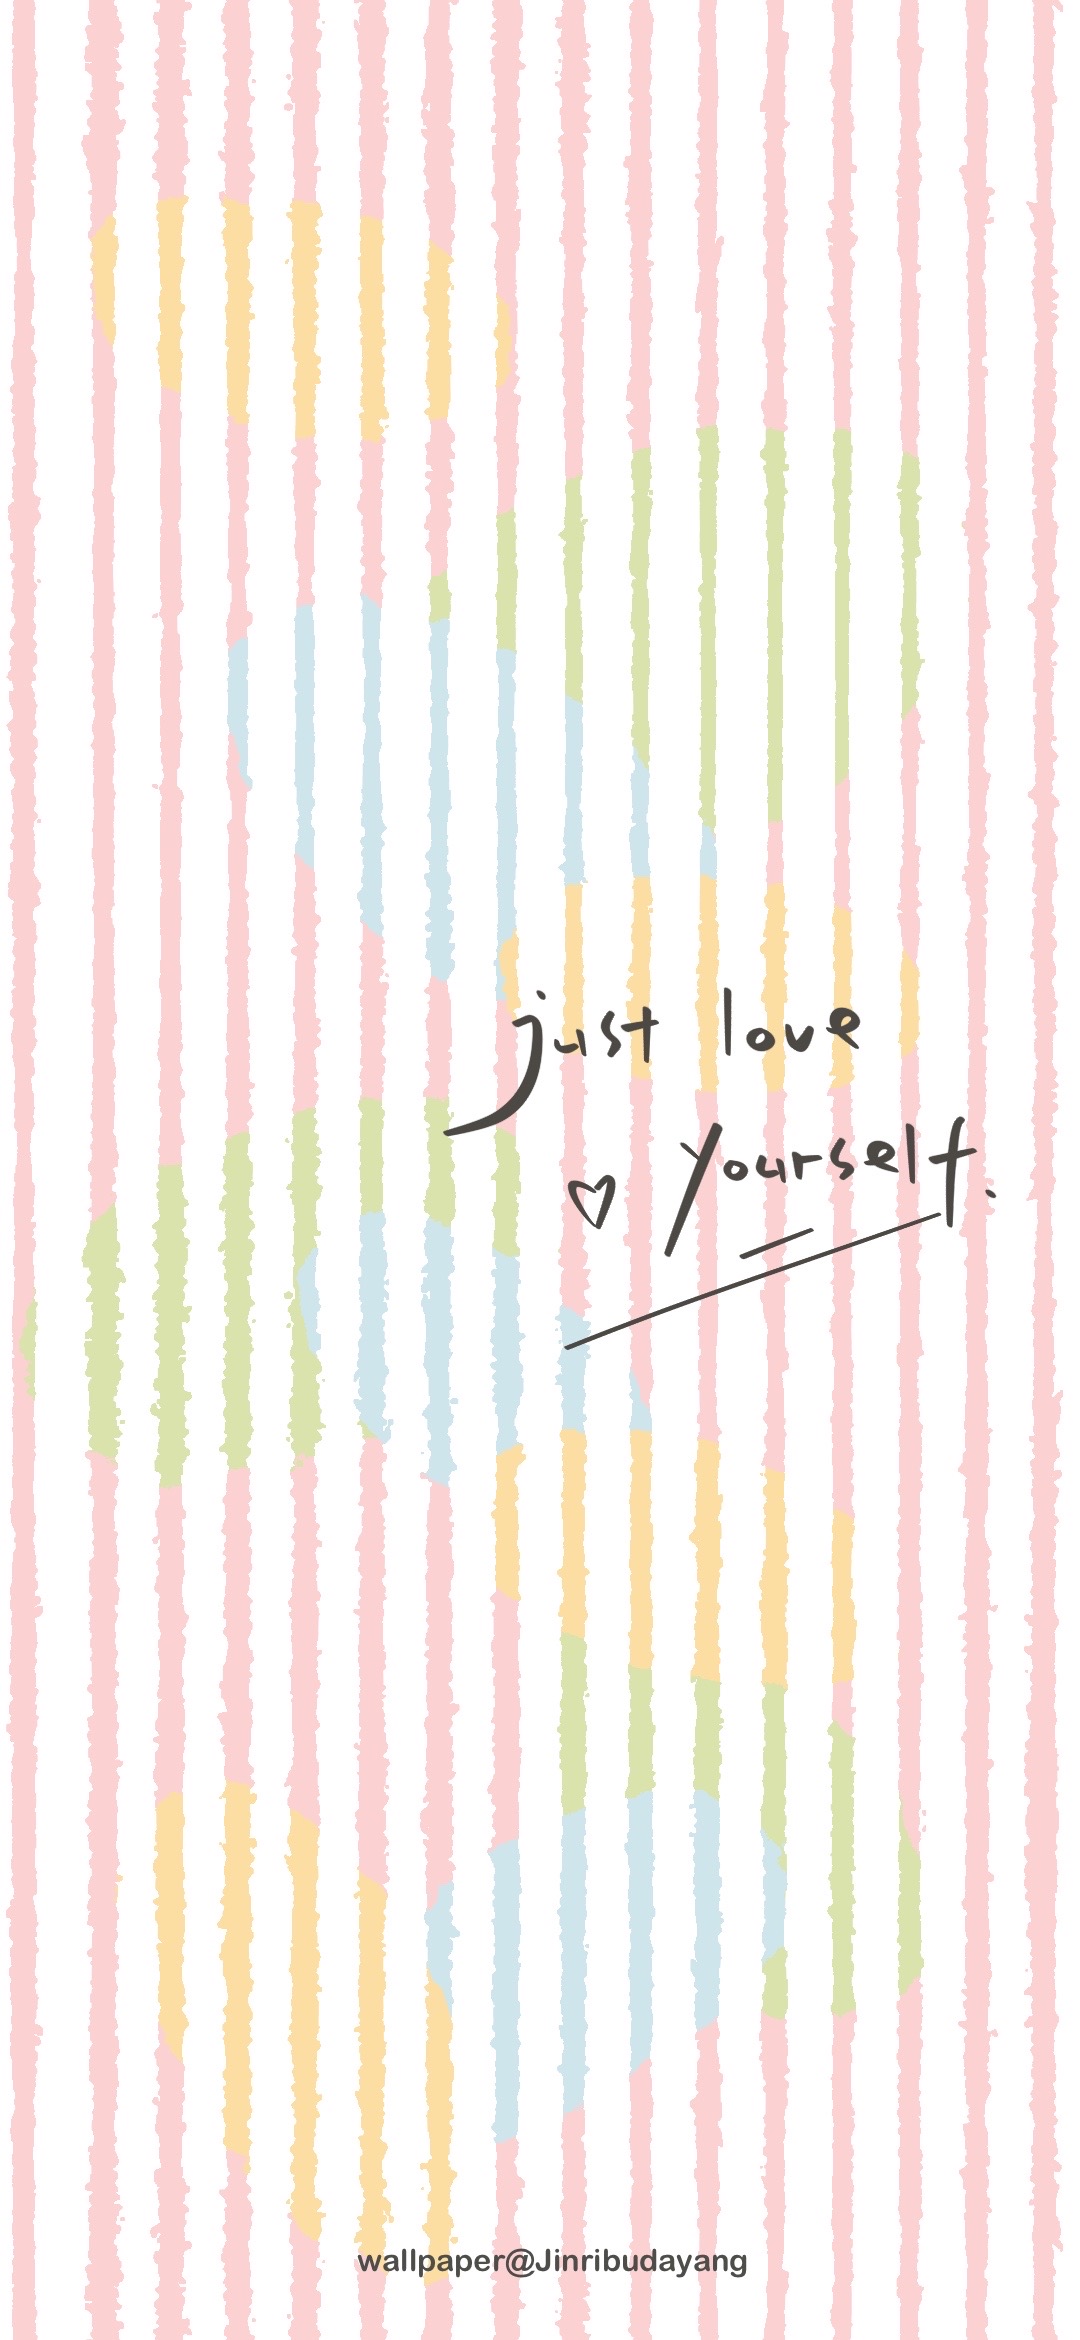 just love
♡ yourself.
wallpaper@Jinribudayang